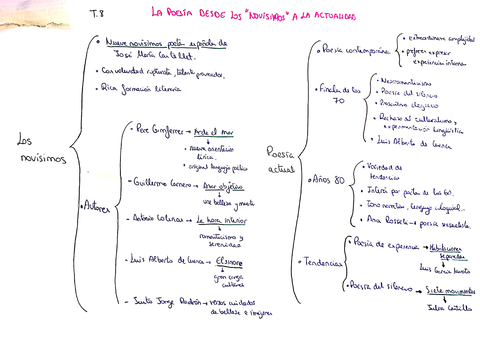 T.8 LA POESÍA DESDE LOS "NOVÍSIMOS" A LA ACTUALIDAD
Los
novísimos
• Nueve novísimos poetas españoles de
José María Castellet.
• Con voluntad rupturista, talento provocador.
• Rica formación literaria
• Autores
- Pere Gimferrer → Arde el mar
• nuevo
lírico.
• original lenguaje poético
- Guillermo Carnero → Amor objetivo
une belleza y muerte
- Antonio Colinas → La hora interior
romanticismo y
serenidad
- Luis Alberto de Cuenca → Elsinore
gran carga
cultural
- Justo Jorge Padrón → versos cuidados
de belleza e imágenes
Poesía
actual
• Poesía contemporánea
• extraordinaria complejidad
• prefieren expresar
experiencia interna
• Finales de los
70
• Neorromanticismo
• Poesía del silencio
• clásico
• Rechazo al culturalismo y
experimentación lingüística
• Luis Alberto de Cuenca
• Años 80
• Variedad de
tendencias
• Interés por poetas de los 60.
• Tono narrativo, lenguaje coloquial.
• Ana Rossetti → poesía sensualista.
• Tendencias
• Poesía de experiencia → Habitaciones
separadas
Luis García Montero
• Poesía del silencio → Siete
Julia Castillo